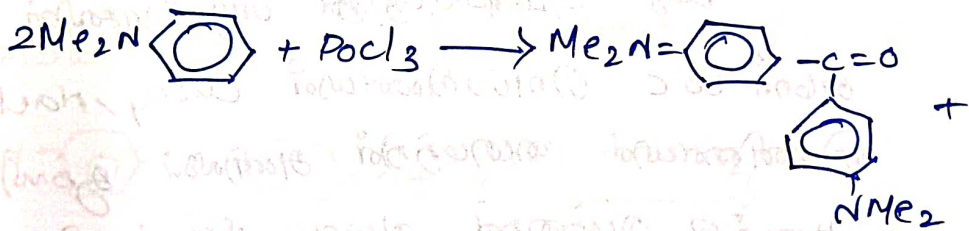 2Me₂N + POCl₃ ⟶ Me₂N= -C=O
+
NMe₂